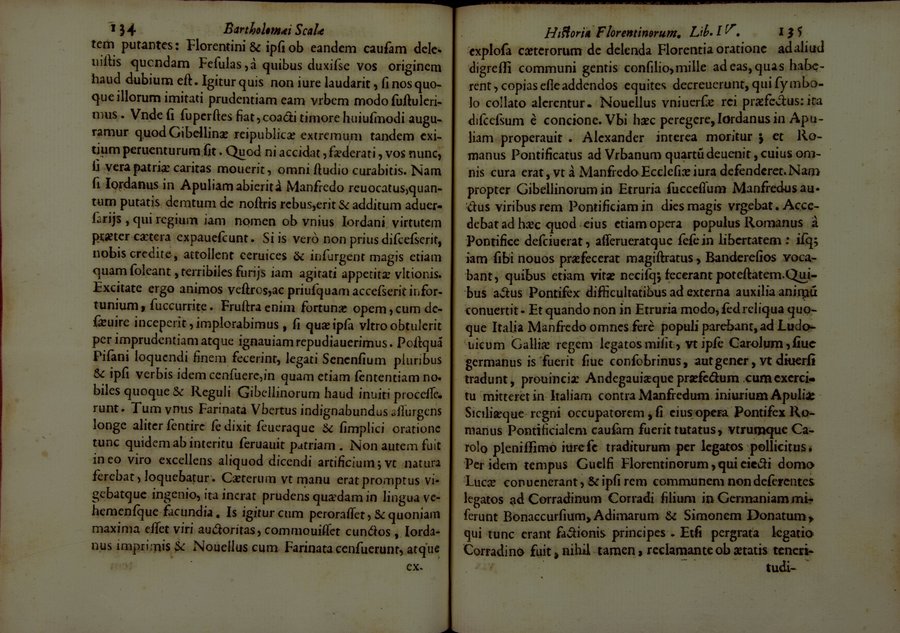 134 Bartholomæi Scalæ
tem putantes: Florentini & ipſi ob eandem cauſam dele-
uiſtis quondam Feſulas, à quibus duxiſſe vos originem
haud dubium eſt. Igitur quis non iure laudarit, ſi nos quo-
que illorum imitati prudentiam eam vrbem modo ſuſtuleri-
mus. Vnde ſi ſuperſtes fiat, coacti timore huiuſmodi augu-
ramur quod Gibellinæ reipublicæ extremum tandem exi-
tium peruenturum ſit. Quod ni accidat, fæderati, vos nunc,
ſi vera patriæ caritas mouerit, omni ſtudio curabitis. Nam
ſi Iordanus in Apuliam abierit à Manfredo reuocatus, quan-
tum putatis demtum de noſtris rebus, erit & additum aduer-
ſarijs, qui regium iam nomen ob vnius Iordani virtutem
præter cætera expaueſcunt. Si is verò non prius diſceſſerit,
nobis credite, attollent ceruices & inſurgent magis etiam
quam ſoleant, terribiles furijs iam agitati appetitæ vltionis.
Excitate ergo animos veſtros, ac priuſquam acceſſerit infor-
tunium, ſuccurrite. Fruſtra enim fortunæ opem, cum de-
ſæuire inceperit, implorabimus, ſi quæ ipſa vltro obtulerit
per imprudentiam atque ignauiam repudiauerimus. Poſtquã
Piſani loquendi finem fecerint, legati Senenſium pluribus
& ipſi verbis idem cenſuere, in quam etiam ſententiam no-
biles quoque & Reguli Gibellinorum haud inuiti proceſſe-
runt. Tum vnus Farinata Vbertus indignabundus aſſurgens
longe aliter ſentire ſe dixit ſeueraque & ſimplici oratione
tunc quidem ab interitu ſeruauit patriam. Non autem fuit
in eo viro excellens aliquod dicendi artificium; vt natura
ferebat, loquebatur. Cæterum vt manu erat promptus vi-
gebatque ingenio, ita inerat prudens quædam in lingua ve-
hemenſque facundia. Is igitur cum peroraſſet, & quoniam
maxima eſſet viri auctoritas, commouiſſet cunctos, Iorda-
nus imprimis & Nouellus cum Farinata cenſuerunt, atque
ex-
Hiſtoria Florentinorum. Lib. IV. 135
exploſa cæterorum de delenda Florentia oratione ad aliud
digreſſi communi gentis conſilio, mille ad eas, quas habe-
rent, copias eſſe addendos equites decreuerunt, qui ſymbo-
lo collato alerentur. Nouellus vniuerſæ rei præfectus: ita
diſceſſum è concione. Vbi hæc peregere, Iordanus in Apu-
liam properauit. Alexander interea moritur; et Ro-
manus Pontificatus ad Vrbanum quartũ deuenit, cuius om-
nis cura erat, vt à Manfredo Eccleſiæ iura defenderet. Nam
propter Gibellinorum in Etruria ſucceſſum Manfredus au-
ctus viribus rem Pontificiam in dies magis vrgebat. Acce-
debat ad hæc quod eius etiam opera populus Romanus à
Pontifice deſciuerat, aſſerueratque ſeſe in libertatem: iſq;
iam ſibi nouos præfecerat magiſtratus, Banderefios voca-
bant, quibus etiam vitæ neciſq; fecerant poteſtatem. Qui-
bus actus Pontifex difficultatibus ad externa auxilia animũ
conuertit. Et quando non in Etruria modo, ſed reliqua quo-
que Italia Manfredo omnes ferè populi parebant, ad Ludo-
uicum Galliæ regem legatos miſit, vt ipſe Carolum, ſiue
germanus is fuerit ſiue conſobrinus, aut gener, vt diuerſi
tradunt, prouinciæ Andegauiæque præfectum cum exerci-
tu mitteret in Italiam contra Manfredum iniurium Apuliæ
Siciliæque regni occupatorem, ſi eius opera Pontifex Ro-
manus Pontificialem cauſam fuerit tutatus, vtrumque Ca-
rolo pleniſſimo iure ſe traditurum per legatos pollicitus.
Per idem tempus Guelfi Florentinorum, qui eiecti domo
Lucæ conuenerant, & ipſi rem communem non deferentes
legatos ad Corradinum Corradi filium in Germaniam mi-
ſerunt Bonaccurſium, Adimarum & Simonem Donatum,
qui tunc erant factionis principes. Etſi pergrata legatio
Corradino fuit, nihil tamen, reclamante ob ætatis teneri-
tudi-